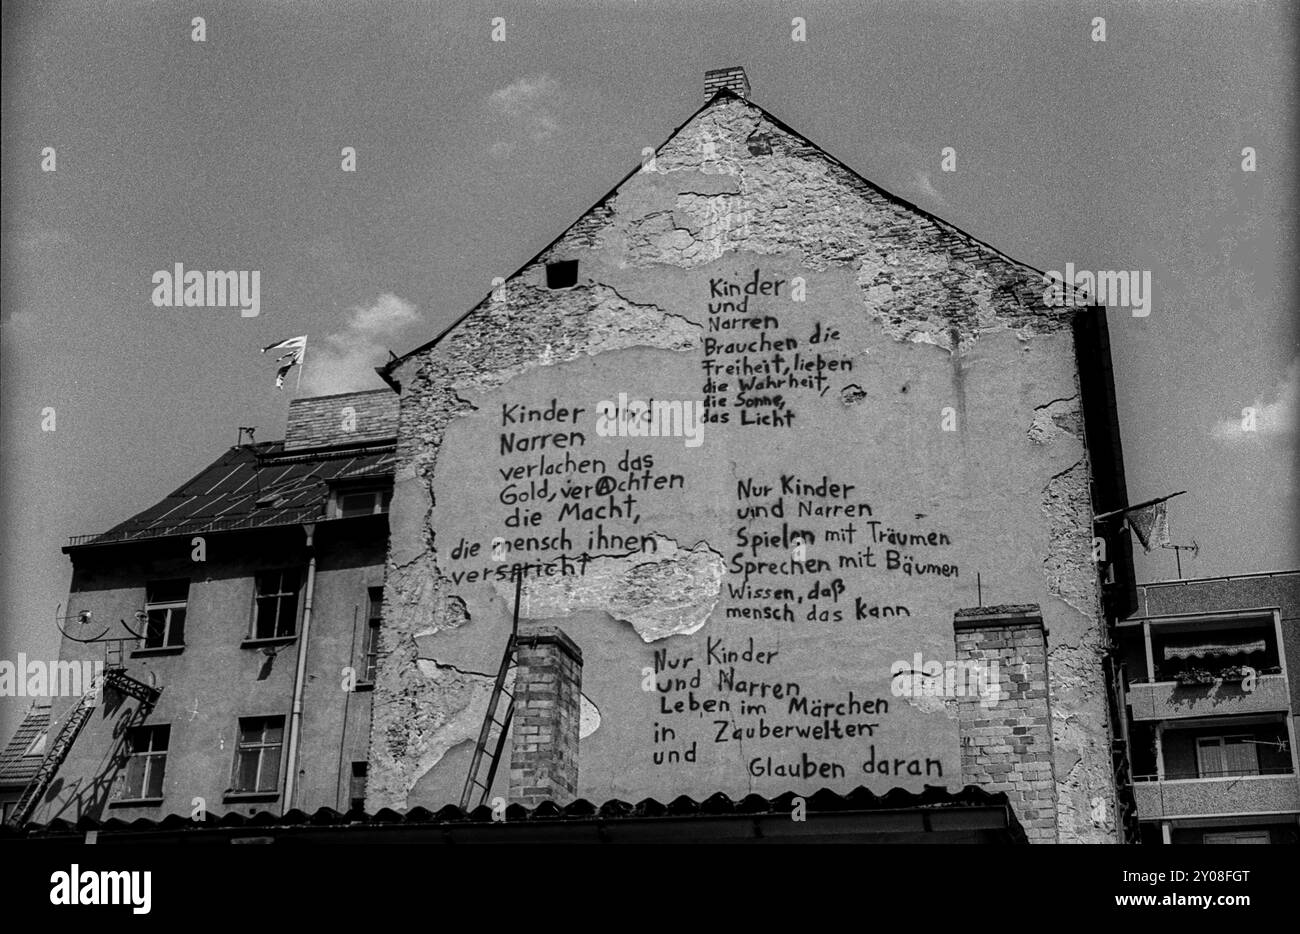 Kinder
und
Narren
Brauchen die
Freiheit, lieben
die Wahrheit,
die Sonne,
das Licht
Kinder und
Narren
verlachen das
Gold, verAchten
die Macht,
die mensch ihnen
verspricht
Nur Kinder
und Narren
Spielen mit Träumen
Sprechen mit Bäumen
Wissen, daß
mensch das kann
Nur Kinder
und Narren
Leben im Märchen
in Zauberwelten
und Glauben daran
alamy
a
a
a
a
a
a
a
a
a
alamy
alamy
alamy
alamy
alamy
Image ID: Y08FGT
www.alamy.com